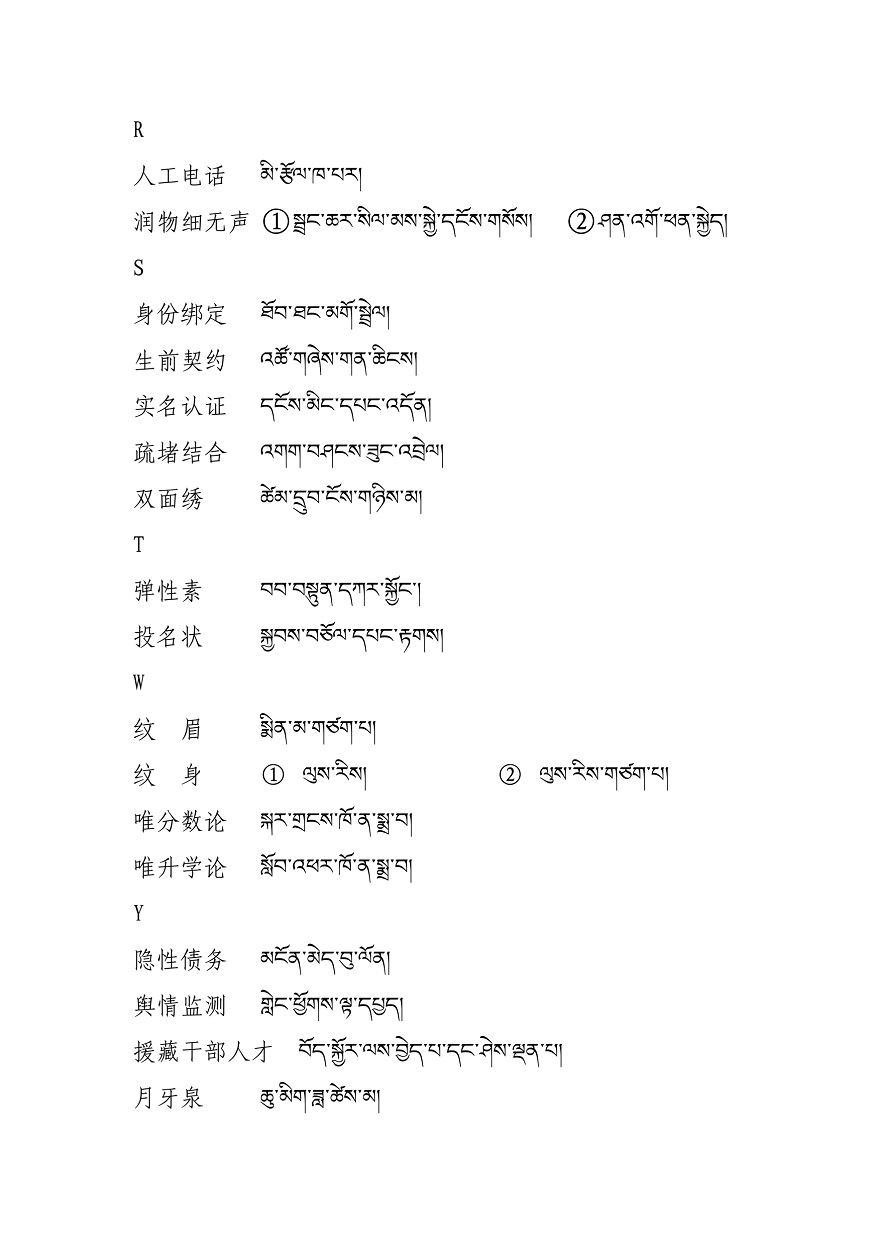 R
人工电话 མི་རྩོལ་ཁ་པར།
润物细无声 ①སྦྲང་ཆར་སིལ་མས་སྐྱེ་དངོས་གསོས། ②ཤན་འགོ་ཕན་སྐྱེད།
S
身份绑定 ཐོབ་ཐང་མགོ་སྦྲེལ།
生前契约 འཚོ་གཞེས་གན་ཆིངས།
实名认证 དངོས་མིང་དཔང་འདོན།
疏堵结合 འགག་བཤངས་ཟུང་འབྲེལ།
双面绣 ཚེམ་དྲུབ་ངོས་གཉིས་མ།
T
弹性素 བབ་བསྟུན་དཀར་སྐྱོང་།
投名状 སྐྱབས་བཅོལ་དཔང་རྟགས།
W
纹 眉 སྨིན་མ་གཙག་པ།
纹 身 ① ལུས་རིས། ② ལུས་རིས་གཙག་པ།
唯分数论 སྐར་གྲངས་ཁོ་ན་སྨྲ་བ།
唯升学论 སློབ་འཕར་ཁོ་ན་སྨྲ་བ།
Y
隐性债务 མངོན་མེད་བུ་ལོན།
舆情监测 གླེང་ཕྱོགས་ལྟ་དཔྱད།
援藏干部人才 བོད་སྐྱོར་ལས་བྱེད་པ་དང་ཤེས་ལྡན་པ།
月牙泉 ཆུ་མིག་ཟླ་ཚེས་མ།